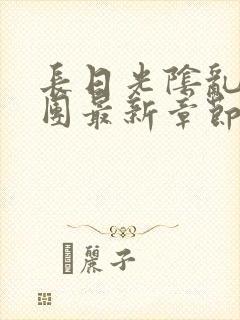 長日光陰亂
團最新章節
麗子